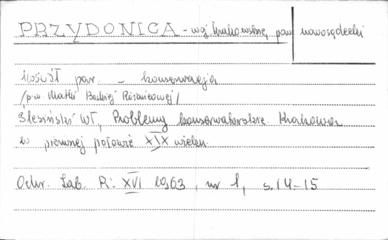 PRZYDONICA - woj. krakowskie, pow. nowosądecki
kościół par. - konserwacja
/p.w. Matki Boskiej Różańcowej/
Ślesiński Wł, Problemy konserwatorskie Krakowa
w pierwszej połowie XIX wieku
Ochr. Zab. R: XVI 1963, nr 1, s. 14-15